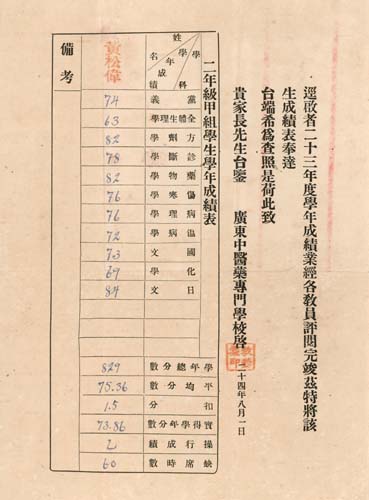 逕啟者二十三年度學年成績業經各教員評閱完竣茲特將該
生成績表奉達
台端希爲查照是荷此致
貴家長先生台鑒 廣東中醫藥專門學校啓
十四年八月一日
二年級甲組學生學年成績表
學科
學年成績
姓名
黃松偉
黨義 74
全體生理學 63
方劑學 82
診斷學 78
藥物學 82
傷寒學 76
病理學 76
溫病學 72
國文 73
化學 69
日文 84
學年總分數 829
平均分數 75.36
扣分 1.5
實得學年分數 73.86
操行成績 乙
缺席時數 60
備考